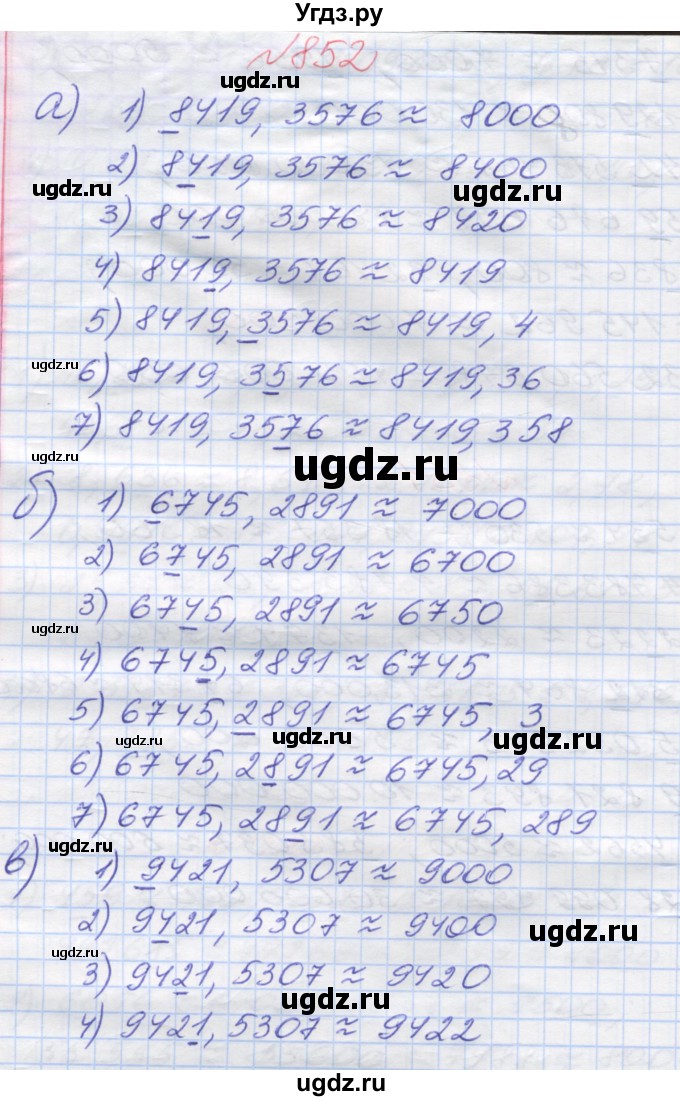 Угдз.ру
№852
ugdz.ru
а) 1) 8419, 3576 ≈ 8000
2) 8419, 3576 ≈ 8400
ugdz.ru
ugdz.ru
3) 8419, 3576 ≈ 8420
4) 8419, 3576 ≈ 8419
5) 8419, 3576 ≈ 8419, 4
ugdz.ru
6) 8419, 3576 ≈ 8419, 36
7) 8419, 3576 ≈ 8419, 358
ugdz.ru
б) 1) 6745, 2891 ≈ 7000
2) 6745, 2891 ≈ 6700
3) 6745, 2891 ≈ 6750
ugdz.ru
4) 6745, 2891 ≈ 6745
5) 6745, 2891 ≈ 6745, 3
ugdz.ru
ugdz.ru
ugdz.ru
6) 6745, 2891 ≈ 6745, 29
7) 6745, 2891 ≈ 6745, 289
ugdz.ru
в) 1) 9421, 5307 ≈ 9000
2) 9421, 5307 ≈ 9400
ugdz.ru
3) 9421, 5307 ≈ 9420
ugdz.ru
4) 9421, 5307 ≈ 9422
ugdz.ru